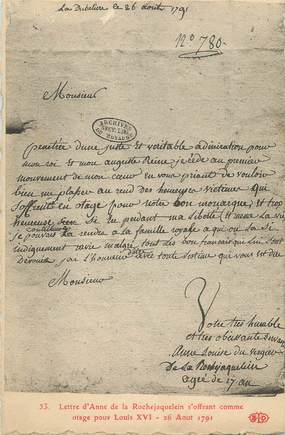 La Debeliere le 26 août 1791
N° 780.
Monsieur
penetrée d'une juste et veritable admiration pour
mon roi et mon auguste Reine, je cède au premier
mouvement de mon cœur en vous priant de vouloir
bien me placer au rend des heureuses victimes qui
s'offrent en otage pour notre bon monarque, et trop
heureuse si en perdant ma liberté et meme la vie
je pouvais contribuer a la rendre a la famille royale a qui on la si
indignement ravie malgré tout les bon français qui lui sont
Devoués j'ai l'honneur d'être
Monsieur
Votre tres humble
et tres obeissante servan
Anne Louise du verger
De La Rochejaquelein
agée de 17 an
ARCHIVES
53. Lettre d'Anne de la Rochejaquelein s'offrant comme
otage pour Louis XVI - 26 Aout 1791